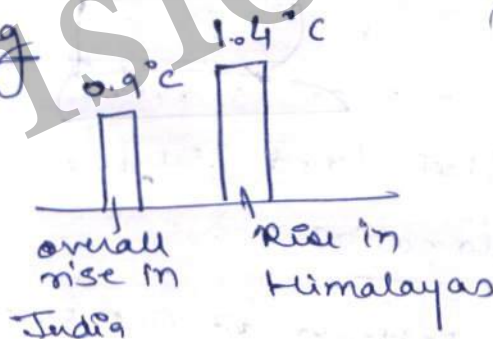 1.4°C
0.9°C
overall
rise in
India
Rise in
Himalayas